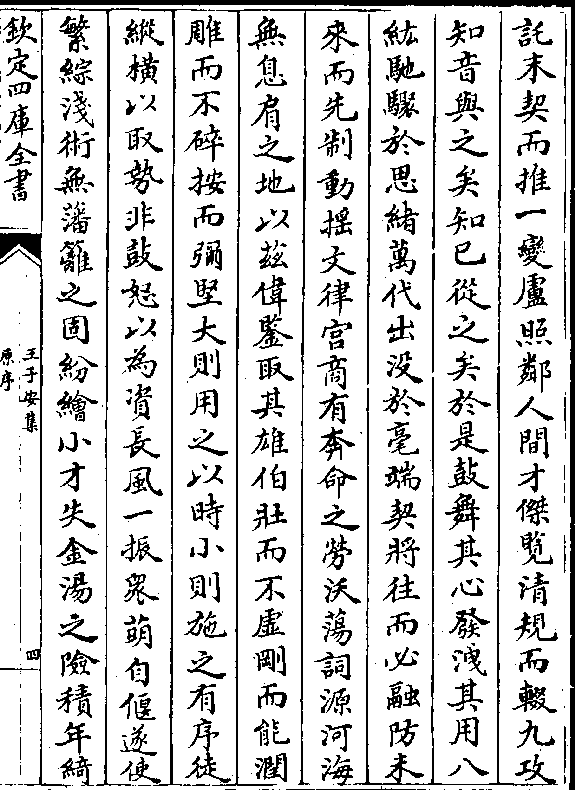 託末契而推一變盧照鄰人間才傑覽清規而輟九攻
知音與之矣知己從之矣於是鼓舞其心發洩其用八
紘馳騁於思緒萬代出没於毫端契將往而必融防未
來而先制動揺文律宫商有奔命之勞沃蕩詞源河海
無息肩之地以兹偉鑒取其雄伯壯而不虚剛而能潤
雕而不碎按而彌堅大則用之以時小則施之有序徒
縱横以取勢非鼓怒以為資長風一振衆萌自偃遂使
繁綜淺術無藩籬之固紛繪小才失金湯之險積年綺
欽定四庫全書
王子安集
原序
四